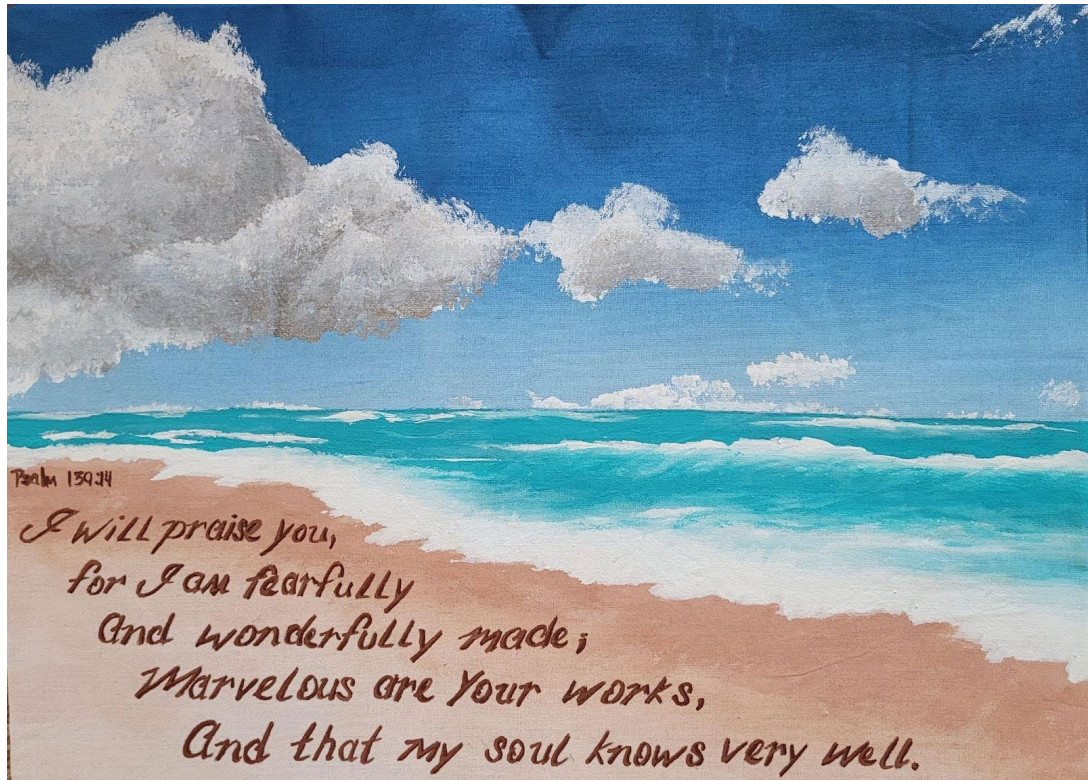 Psalm 139:14
I will praise you,
for I am fearfully
And wonderfully made;
Marvelous are Your works,
And that my soul knows very well.